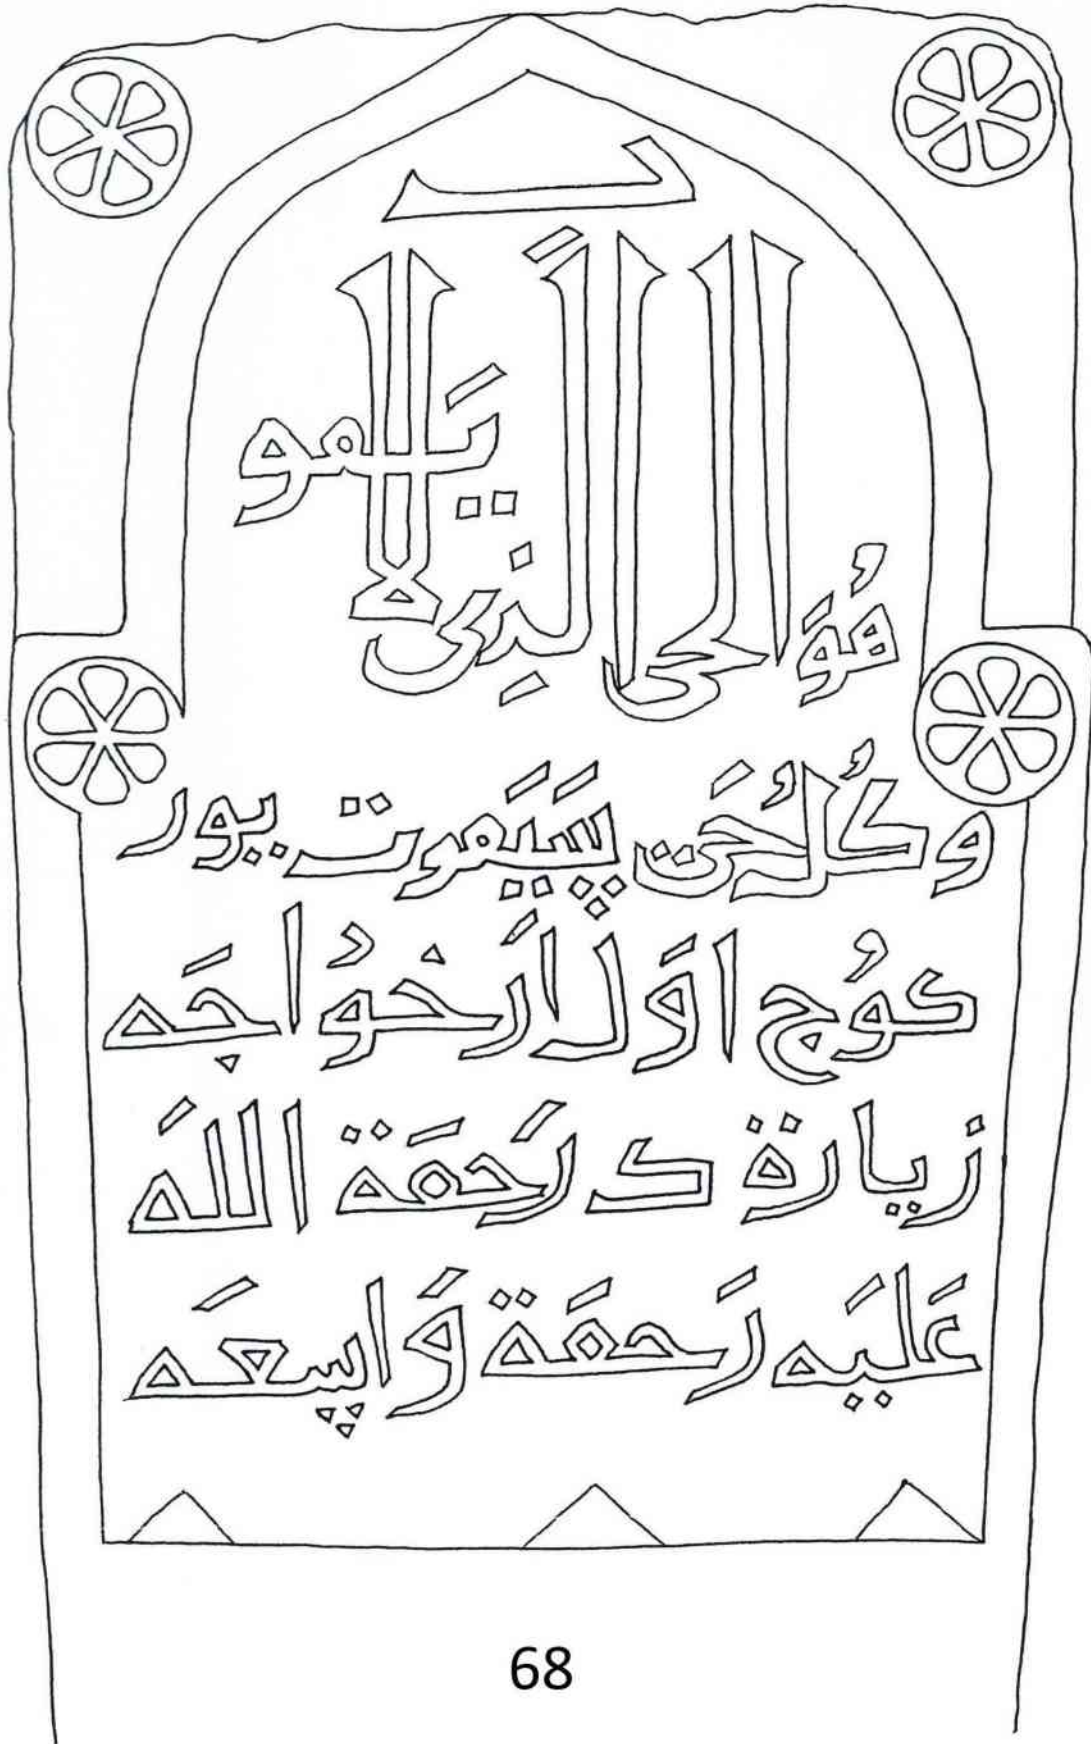 هُوَ الحى الَذِى لا يَموت
وكُلُ حَُى سَيَموت بيور
كوُج اوَل ارَخوُاجَه
زيارة ك رَحمَة اللهَ
عَليَه رَحمَة وَاسعَه
68